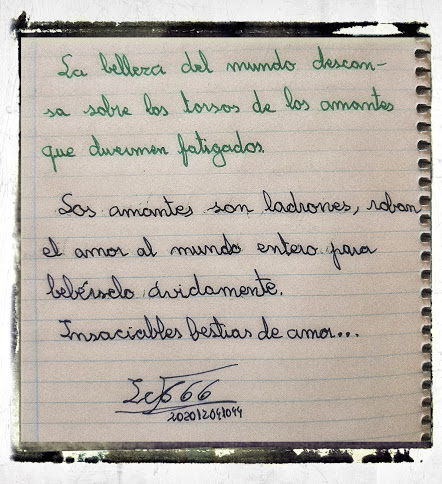 La belleza del mundo descan-
sa sobre los torsos de los amantes
que duermen fatigados.
Los amantes son ladrones, roban
el amor al mundo entero para
bebérselo ávidamente.
Insaciables bestias de amor...
666